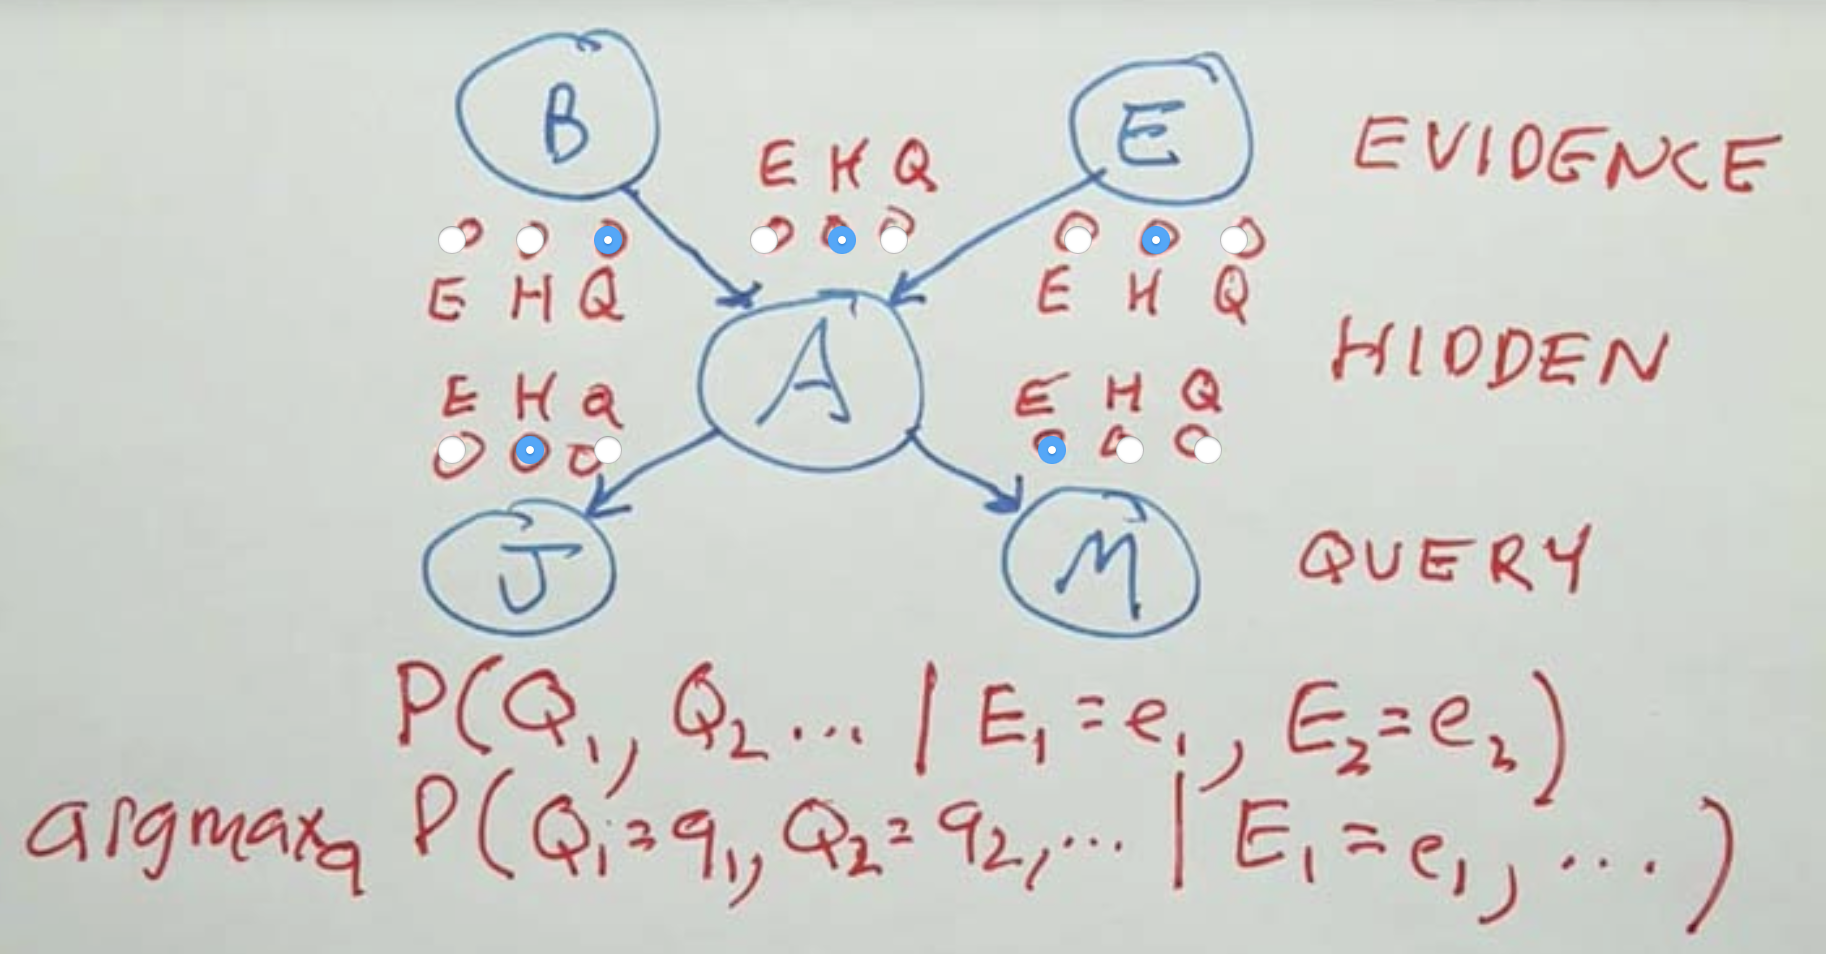 B
E
E H Q
EVIDENCE
E H Q
E H Q
A
HIDDEN
E H Q
E H Q
J
M
QUERY
P(Q₁, Q₂ ... | E₁ = e₁, E₂ = e₂)
argmax_q P(Q₁ = q₁, Q₂ = q₂, ... | E₁ = e₁, ...)